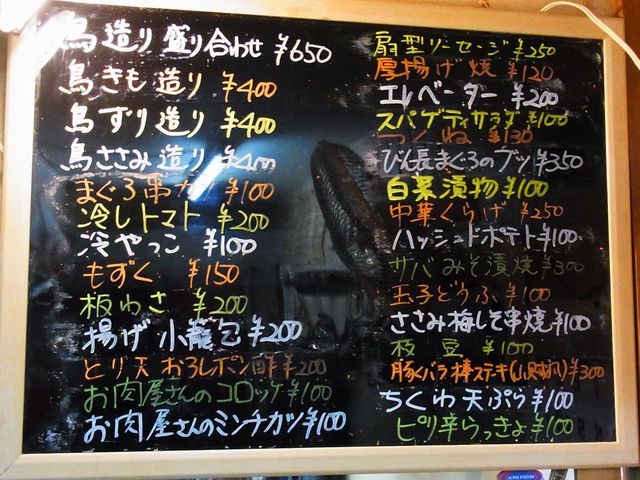 鳥造り盛り合わせ ¥650
鳥きも造り ¥400
鳥ずり造り ¥400
鳥ささみ造り ¥400
まぐろ串カツ ¥100
冷しトマト ¥200
冷やっこ ¥100
もずく ¥150
板わさ ¥200
揚げ小籠包 ¥200
とり天おろしポン酢 ¥200
お肉屋さんのコロッケ ¥100
お肉屋さんのミンチカツ ¥100
扇型ソーセージ ¥250
厚揚げ焼 ¥120
エレベーター ¥200
スパゲティサラダ ¥100
つくね ¥130
びん長まぐろのブツ ¥350
白菜漬物 ¥100
中華くらげ ¥250
ハッシュドポテト ¥100
サバみそ漬焼 ¥300
玉子どうふ ¥100
ささみ梅しそ串焼 ¥100
枝豆 ¥100
豚バラ棒ステーキ ¥300
ちくわ天ぷら ¥100
ピリ辛らっきょ ¥100